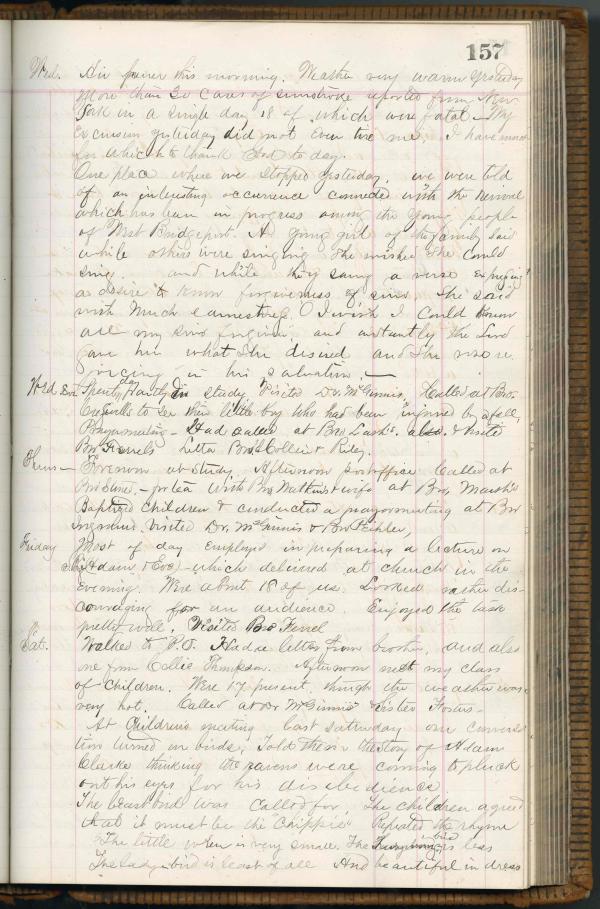 157
Wed. Air purer this morning. Weather very warm yesterday
More than 20 cases of sunstroke reported from New
York in a single day 18 of which were fatal - My
Excursion yesterday did not even tire me. I have much
for which to thank God to day.
One place where we stopped yesterday, we were told
of an interesting occurrence connected with the revival
which has been in progress among the young people
of West Bridgeport. A young girl of the family said
while others were singing she wished she could
sing. and while they sang a verse expressing
a desire to know forgiveness of sins. She said
with much earnestness, O I wish I could know
all my sins forgiven, and instantly the Lord
gave her what she desired and she rose
rejoicing in his salvation. —
Wed. Eve Spent in study, Visited Dr. McGinnis, Called at Bro.
to see their little boy who had been injured by a fall,
Prayermeeting - Had called at Bro Lash's. also &
Bro Ferrel's Letter Bros Collier & Riley.
Thurs - Forenoon at Study. Afternoon post office Called at
Bro - for tea with Bro Watkins & wife at Bro, Marsh's
Baptized children & conducted a prayermeeting at Bro
Visited Dr. McGinnis & Bro
Friday Most of day employed in preparing a lecture on
Adam & Eve) - which delivered at church in the
Evening. Were about 18 of us. Looked rather dis-
couraging for an audience. Enjoyed the task
pretty well. Visited Bro Ferrel
Sat. Walked to P.O. Had a letter from brother, and also
one from Collie Thompson. Afternoon met my class
of children. Were 17 present, though the weather was
very hot. Called at Dr McGinnis' Sister Foster -
At Children's meeting last saturday our conversa
tion turned on birds, Told them the story of Adam
Clarke thinking the ravens were coming to pluck
out his eyes for his disobedience
The least bird was called for, The children agreed
that it must be the "Chippie" Repeated the rhyme
"The little wren is very small. The bird is less
The lady-bird is least of all And beautiful in dress